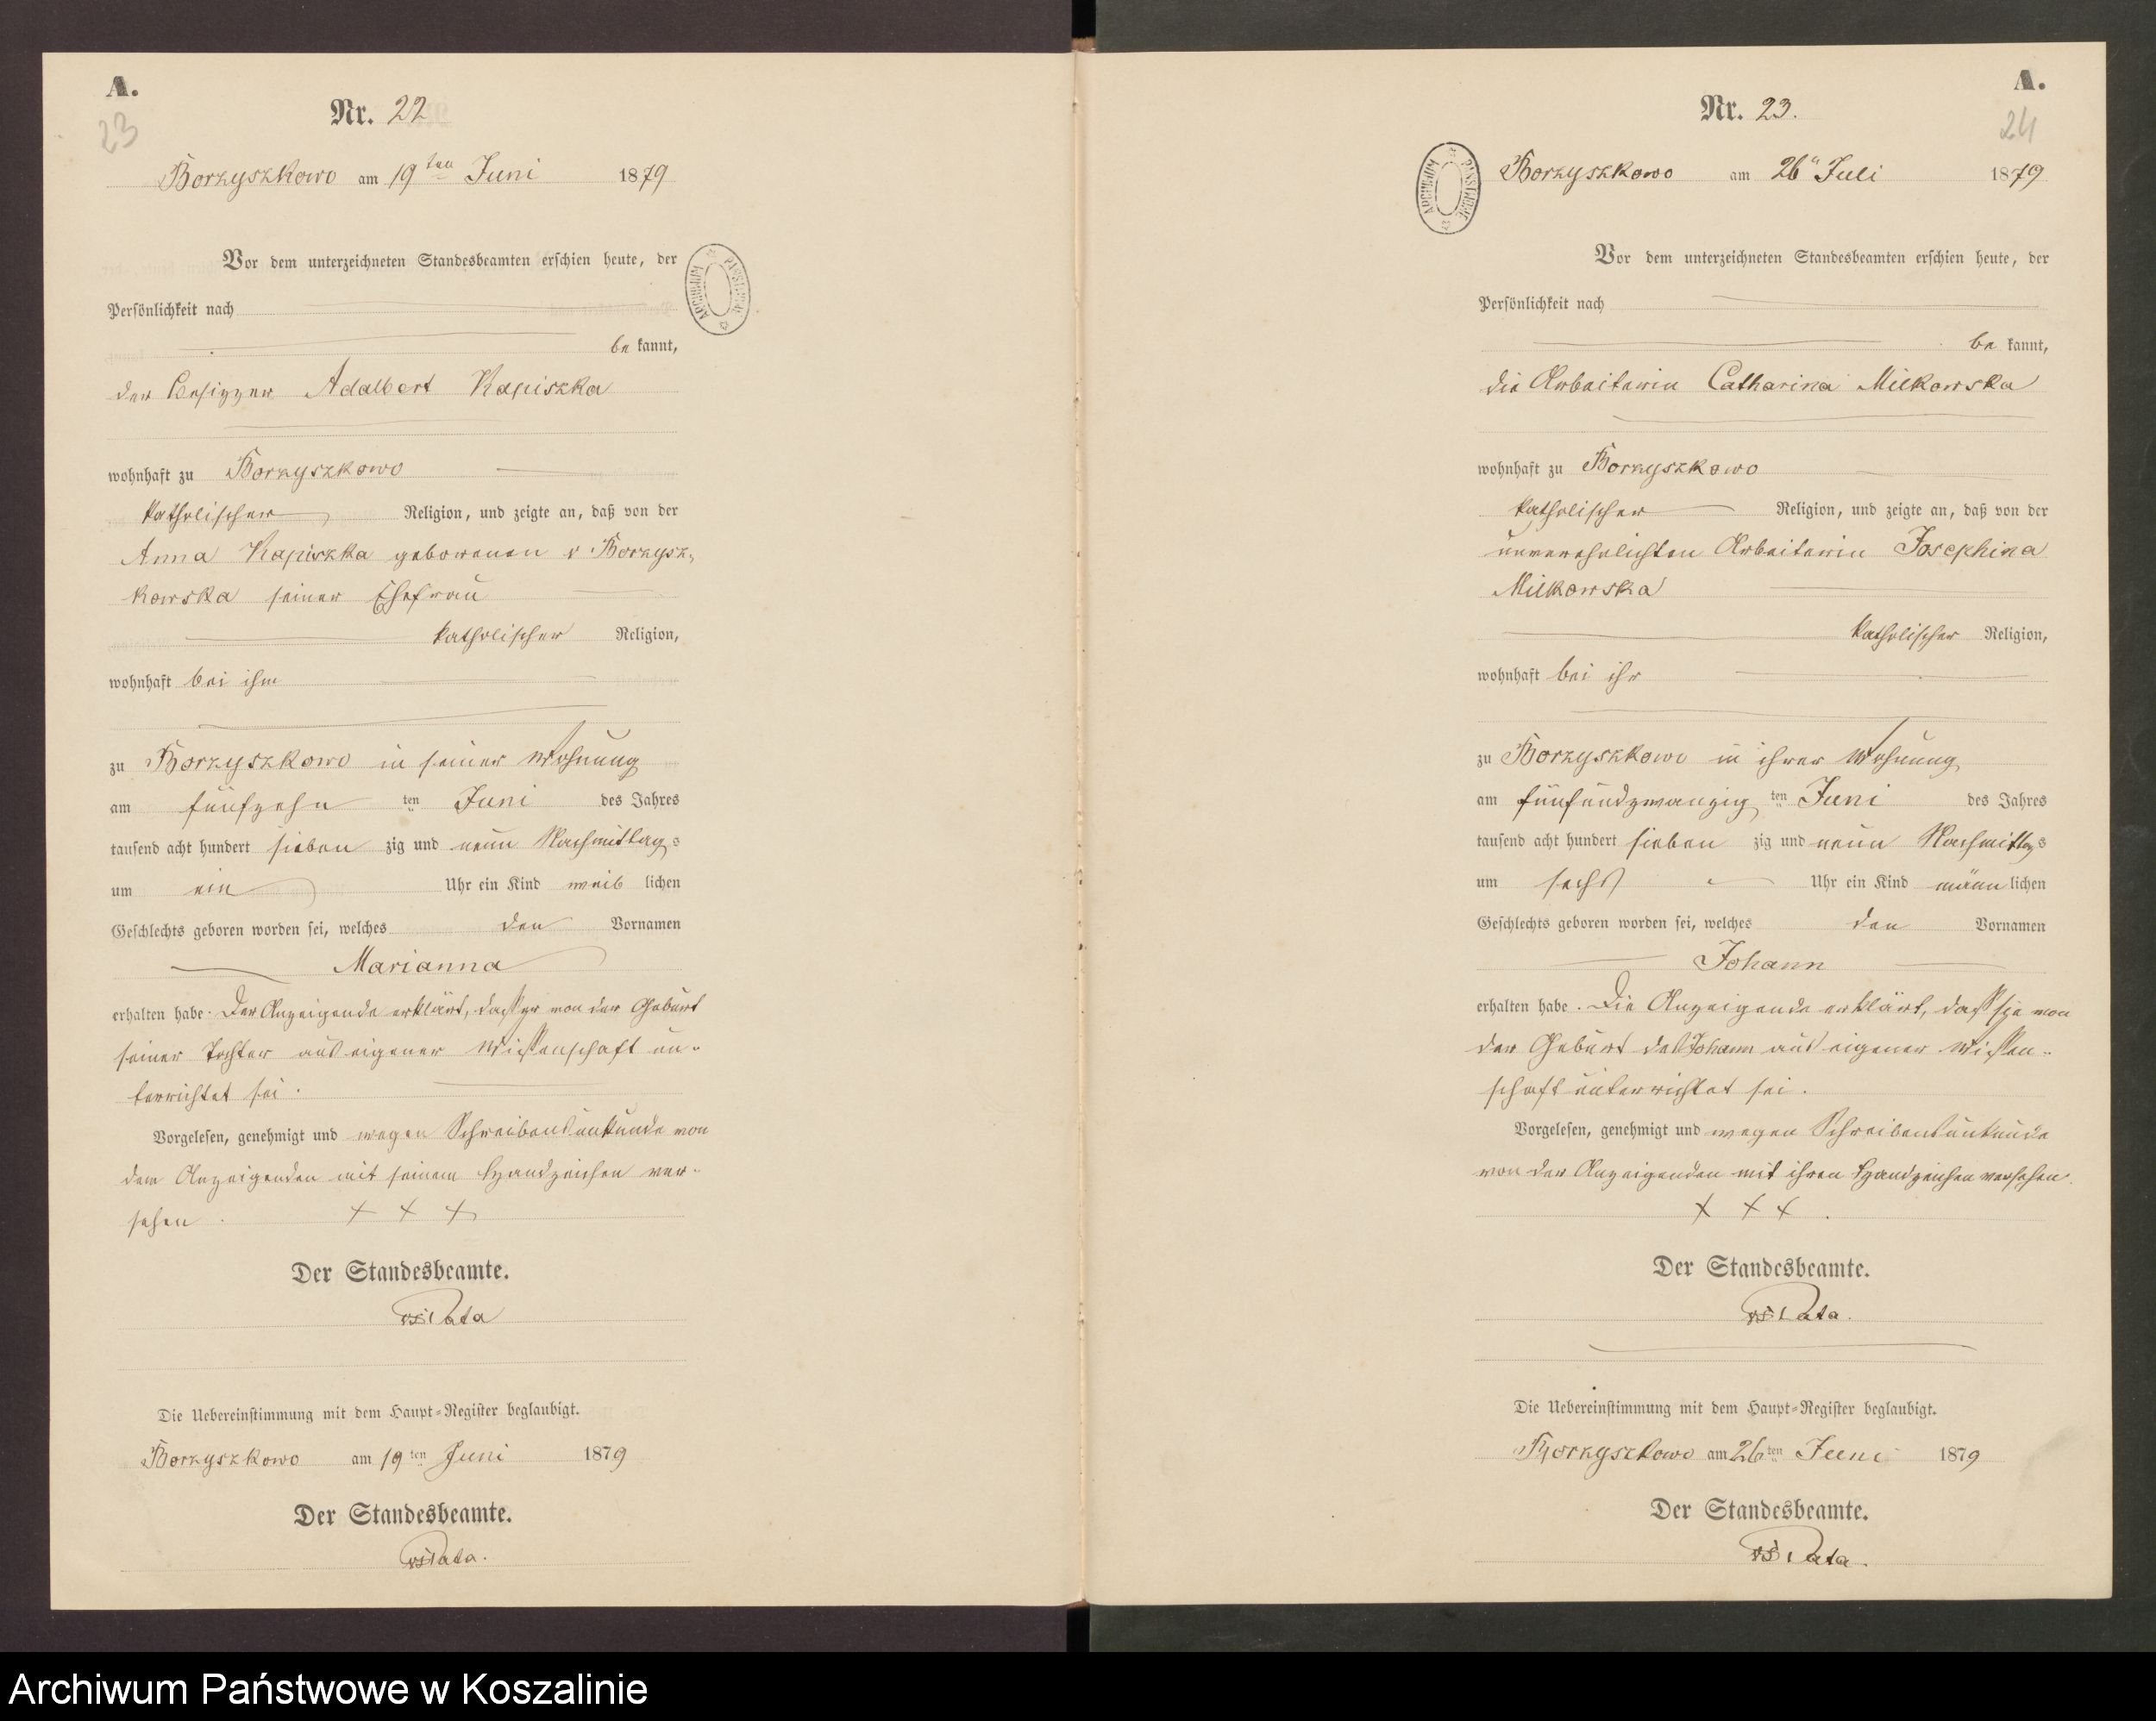 A.
23
Nr. 22
Borzyszkowo am 19ten Juni 1879
Vor dem unterzeichneten Standesbeamten erschien heute, der
Persönlichkeit nach
be kannt,
der Besitzer Adalbert Kapiszka
wohnhaft zu Borzyszkowo
katholischer Religion, und zeigte an, daß von der
Anna Kapiszka geborenen v Borzysz-
kowska seiner Ehefrau
katholischer Religion,
wohnhaft bei ihm
zu Borzyszkowo in seiner Wohnung
am fünfzehn ten Juni des Jahres
tausend acht hundert sieben zig und neun Nachmittags
um ein Uhr ein Kind weib lichen
Geschlechts geboren worden sei, welches den Vornamen
Marianna
erhalten habe. Der Anzeigende erklärt, daß er von der Geburt
seiner Tochter aus eigener Wissenschaft un-
terrichtet sei.
Vorgelesen, genehmigt und wegen Schreibensunkunde von
dem Anzeigenden mit seinem Handzeichen ver-
sehen. + + +
Der Standesbeamte.
Pata
Die Uebereinstimmung mit dem Haupt-Register beglaubigt.
Borzyszkowo am 19 ten Juni 1879
Der Standesbeamte.
Pata.
ARCHIWUM PAŃSTWOWE
A.
24
Nr. 23.
Borzyszkowo am 26" Juli 1879
Vor dem unterzeichneten Standesbeamten erschien heute, der
Persönlichkeit nach
be kannt,
die Arbeiterin Catharina Milkowska
wohnhaft zu Borzyszkowo
katholischer Religion, und zeigte an, daß von der
unverehelichten Arbeiterin Josephina
Milkowska
katholischer Religion,
wohnhaft bei ihr
zu Borzyszkowo in ihrer Wohnung
am fünfundzwanzig ten Juni des Jahres
tausend acht hundert sieben zig und neun Nachmittags
um sechs Uhr ein Kind männ lichen
Geschlechts geboren worden sei, welches den Vornamen
Johann
erhalten habe. Die Anzeigende erklärt, daß sie von
der Geburt des Johann aus eigener Wissen-
schaft unterrichtet sei.
Vorgelesen, genehmigt und wegen Schreibensunkunde
von der Anzeigenden mit ihren Handzeichen versehen.
+ + + .
Der Standesbeamte.
Pata.
Die Uebereinstimmung mit dem Haupt-Register beglaubigt.
Borzyszkowo am 26 ten Juni 1879
Der Standesbeamte.
Pata.
ARCHIWUM PAŃSTWOWE
Archiwum Państwowe w Koszalinie